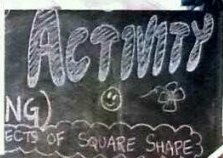 ACTIVITY
NG)
ECTS OF SQUARE SHAPE